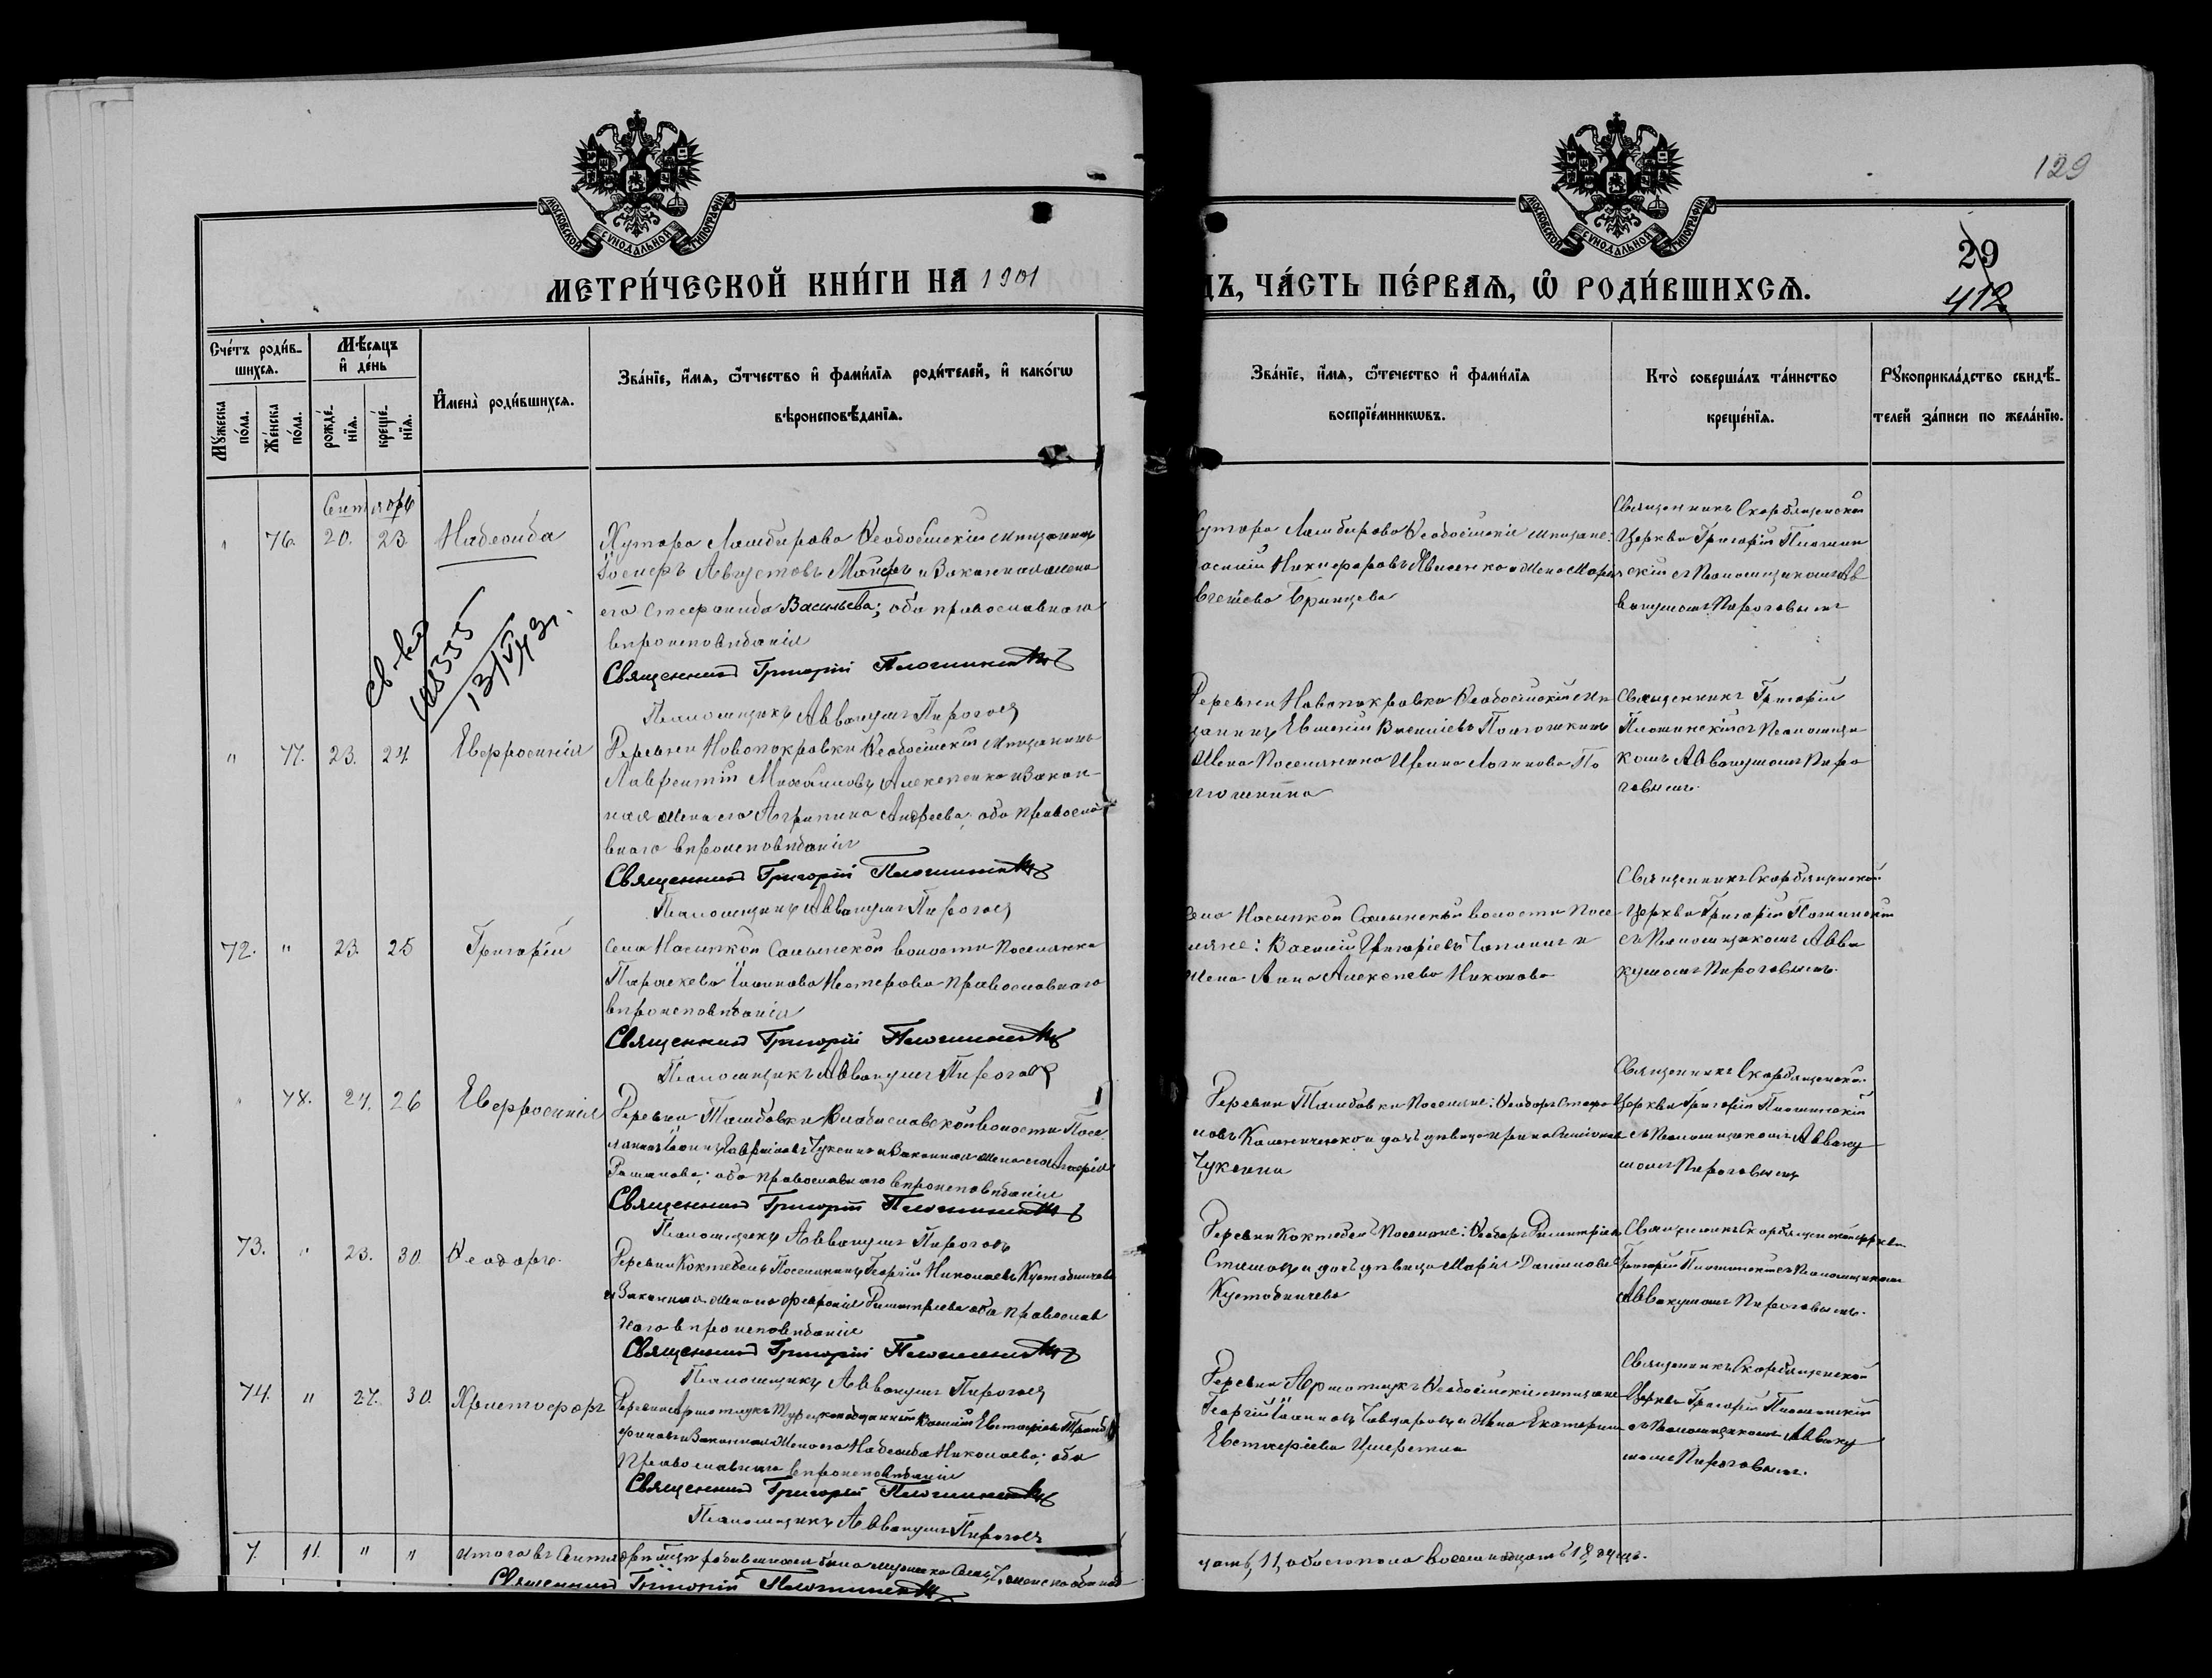 129
МОСКОВСКОЙ СУНОДАЛЬНОЙ ТИПОГРАФІИ
МОСКОВСКОЙ СУНОДАЛЬНОЙ ТИПОГРАФІИ
29
412
МЕТРИ́ЧЕСКОЙ КНИ́ГИ НА 1901
ДЪ, ЧА́СТЬ ПЕ́РВАѦ, Ѡ҆ РОДИ́ВШИХСѦ.
Сче́тъ роди́в-
шихсѧ.
Мѣ́сѧцъ
и҆ де́нь
Мꙋ́жеска по́ла.
Же́нска по́ла.
рожде́-нїѧ.
креще́-нїѧ.
И҆мена̀ роди́вшихсѧ.
Зва́нїе, и҆́мѧ, ѻ҆́тчество и҆ фами́лїѧ роди́телей, и҆ како́гѡ
вѣроисповѣ́данїѧ.
Зва́нїе, и҆́мѧ, ѻ҆те́чество и҆ фами́лїѧ
воспрїе́мникѡвъ.
Кто̀ соверша́лъ та́инство
креще́нїѧ.
Рꙋкоприкла́дство свидѣ́-
телей за́писи по жела́нїю.
Сентябрь
" 76. 20. 23. Надежда
Хутора Ламбирова Ѳеодосійскій мѣщанинъ
Іосифъ Августовъ Майеръ и Законная жена
его Стефанида Васильева; оба православнаго
вѣроисповѣданія
Священникъ Григорій Плотинскій
Псаломщикъ Аввакумъ Пироговъ
Св-во
13/V
Хутора Ламбирова Ѳеодосійскіе мѣщане:
Никифоровъ жена Марія
Брынцева
Священникъ Скорбященской
Церкви Григорій Плотин
скій съ Псаломщикомъ Ав
вакумомъ Пироговымъ
" 77. 23. 24. Евфросинія
Деревни Новопокровки Ѳеодосійскій мѣщанинъ
Лаврентій Михайловъ Алексѣенко и Закон-
ная жена его Агрипина Андреева; оба правосла
внаго вѣроисповѣданія
Священникъ Григорій Плотинскій
Псаломщикъ Аввакумъ Пироговъ
Деревни Новопокровки Ѳеодосійскій мѣ
щанинъ Евгеній Васильевъ
Жена Поселянина Ирина Логинова По
Священникъ Григорій
Плотинскій съ Псаломщи
комъ Аввакумомъ Пиро
говымъ.
72. " 23. 25 Григорій
Села Насыпкой Салынской волости Поселянка
Параскева Іоаннова Нестерова православнаго
вѣроисповѣданія
Священникъ Григорій Плотинскій
Псаломщикъ Аввакумъ Пироговъ
Села Насыпкой Салынской волости Посе
ляне: Василій Григорьевъ и
жена Анна Алексѣева Никонова
Священникъ Скорбященской
Церкви Григорій Плотинскій
съ Псаломщикомъ Авва
кумомъ Пироговымъ.
" 78. 24. 26 Евфросинія
Деревни Тамбовки Владиславской волости Посе
лянинъ Іоаннъ Гавриловъ Чуксинъ и Законная жена его
Романова; оба православнаго вѣроисповѣданія
Священникъ Григорій Плотинскій
Псаломщикъ Аввакумъ Пироговъ
Деревни Тамбовки Поселяне: Ѳеодоръ Стефа
новъ и дочь дѣвица Ирина
Чуксина
Священникъ Скорбященской
Церкви Григорій Плотинскій
съ Псаломщикомъ Авваку
момъ Пироговымъ
73. " 23. 30. Ѳеодоръ.
Деревни Коктебель Поселянинъ Георгій Николаевъ Кустобничевъ
и Законная жена его Февронія Димитріева оба православ
наго вѣроисповѣданія
Священникъ Григорій Плотинскій
Псаломщикъ Аввакумъ Пироговъ
Деревни Коктебель Поселяне: Ѳеодоръ Димитріевъ
Стамовъ и дочь дѣвица Марія
Кустобничева
Священникъ Скорбященской церкви
Григорій Плотинскій съ Псаломщикомъ
Аввакумомъ Пироговымъ.
74. " 27. 30. Христофоръ
Деревни Турецкоподданный Василій Евстафіевъ
и Законная жена его Надежда Николаева; оба
православнаго вѣроисповѣданія
Священникъ Григорій Плотинскій
Псаломщикъ Аввакумъ Пироговъ
Деревни Ѳеодосійскіе мѣщане
Георгій Іоанновъ и жена Екатерина
Евстафіева
Священникъ Скорбященской
Церкви Григорій Плотинскій
съ Псаломщикомъ Авваку
момъ Пироговымъ.
7. 11. " " Итого въ Сентябрѣ мѣсяцѣ родившихся было мужеска семь 7, женска одинад-
цать 11, обоего пола восемнадцать 18 душъ.
Священникъ Григорій Плотинскій